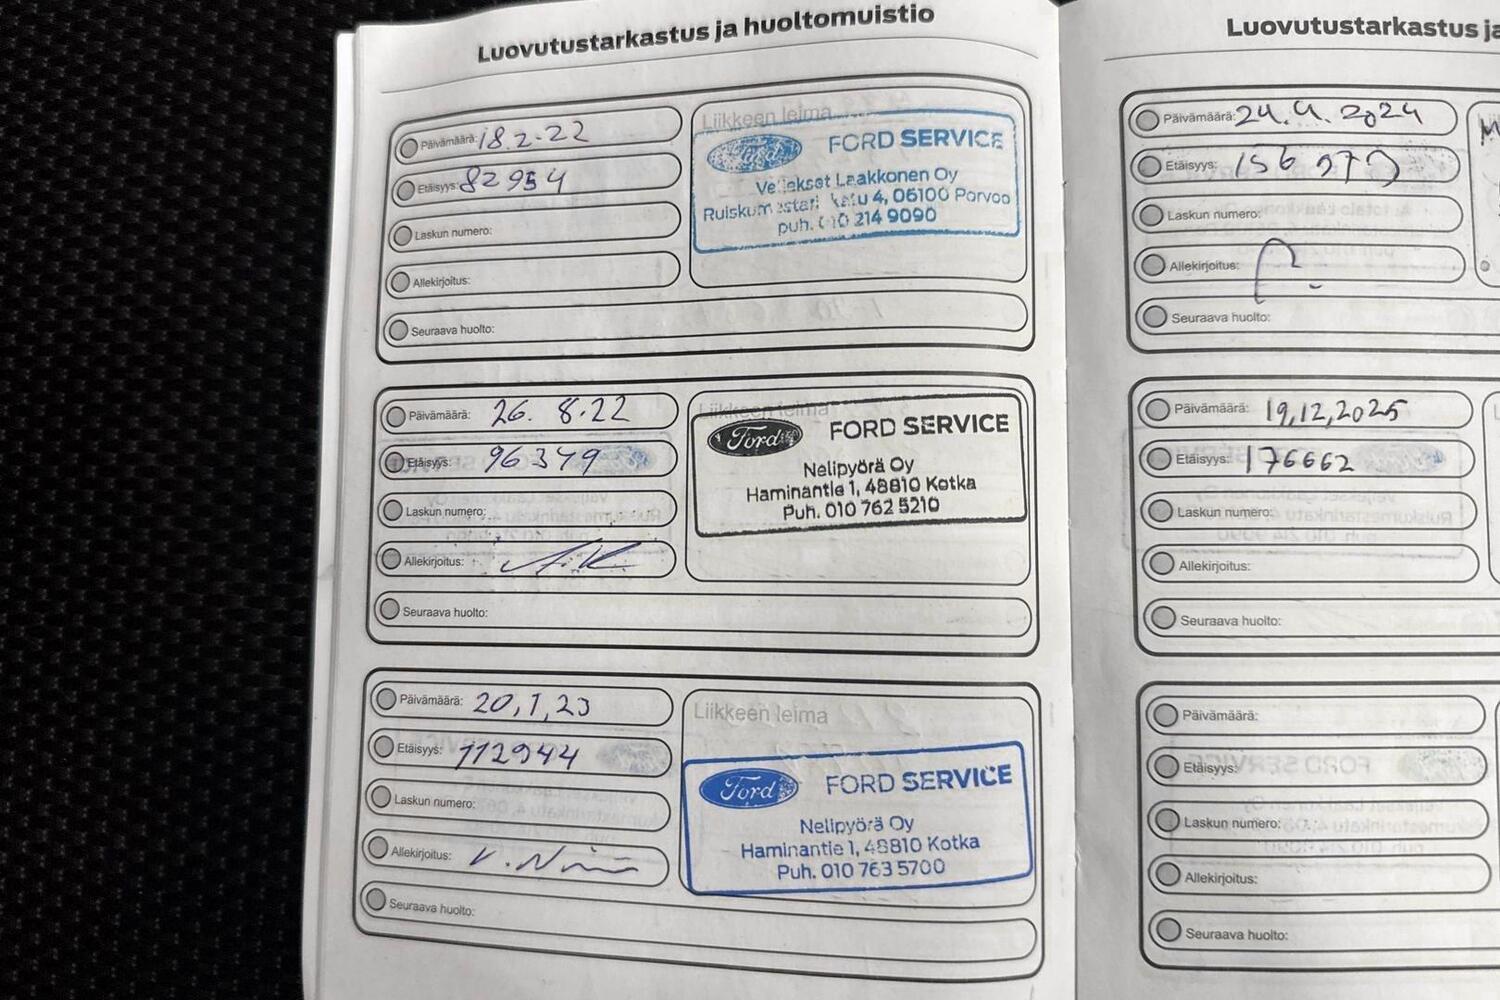 Luovutustarkastus ja huoltomuistio
Päivämäärä: 18.2.22
Etäisyys: 82954
Laskun numero:
Allekirjoitus:
Seuraava huolto:
Liikkeen leima
Ford
FORD SERVICE
Veljekset Laakkonen Oy
Ruiskumestarinkatu 4, 06100 Porvoo
puh. 010 214 9090
Päivämäärä: 26. 8.22
Etäisyys: 96379
Laskun numero:
Allekirjoitus:
Seuraava huolto:
Liikkeen leima
Ford
FORD SERVICE
Nelipyörä Oy
Haminantie 1, 48810 Kotka
Puh. 010 762 5210
Päivämäärä: 20,1,23
Etäisyys: 112944
Laskun numero:
Allekirjoitus:
Seuraava huolto:
Liikkeen leima
Ford
FORD SERVICE
Nelipyörä Oy
Haminantie 1, 48810 Kotka
Puh. 010 763 5700
Luovutustarkastus ja
Päivämäärä: 24.4.2024
Etäisyys: 156 973
Laskun numero:
Allekirjoitus:
Seuraava huolto:
Päivämäärä: 19,12,2025
Etäisyys: 176662
Laskun numero:
Allekirjoitus:
Seuraava huolto:
Päivämäärä:
Etäisyys:
Laskun numero:
Allekirjoitus:
Seuraava huolto: